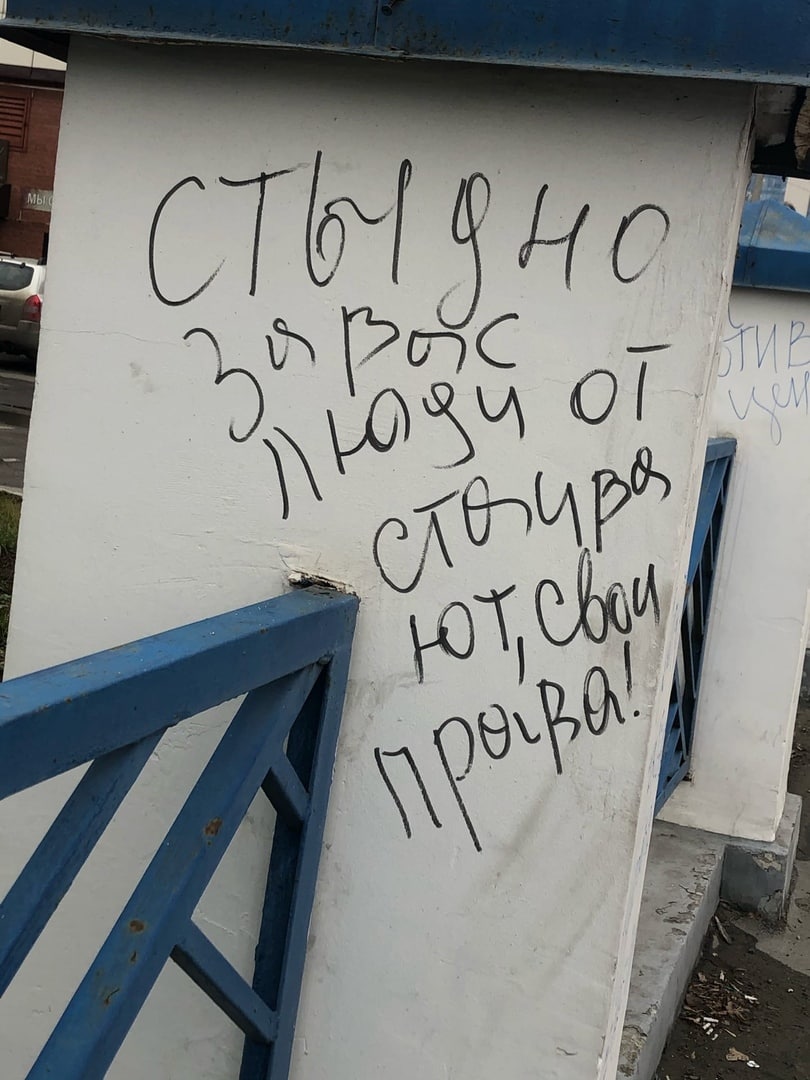 СТЫДНО
За вас
люди от
стаива
ют, свои
права!
МЫ